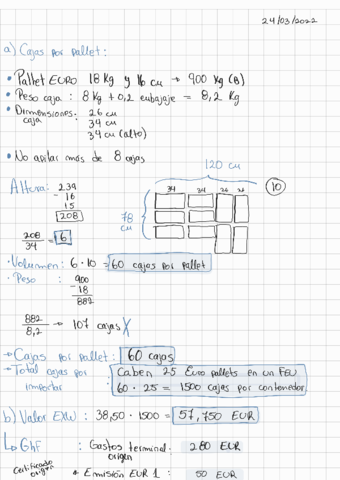 24/03/2022
a) Cajas por pallet:
• Pallet EURO 18 Kg y 16 cm → 900 Kg (B)
• Peso caja : 8 Kg + 0,2 embajaje = 8,2 Kg
• Dimensiones: 26 cm
caja 34 cm
34 cm (alto)
• No apilar más de 8 cajas
120 cm
Altura: 239
- 16
15
208
34 34 26 26
10
78 cm
208/34 = 6
• Volumen: 6 · 10 = 60 cajas por pallet
• Peso : 900
- 18
882
882/8,2 → 107 cajas X
→ Cajas por pallet: 60 cajas
→ Total cajas por importar : Caben 25 Euro pallets en un FEU
60 · 25 = 1500 cajas por contenedor
b) Valor EXW : 38,50 · 1500 = 57,750 EUR
↳ GhF : Gastos terminal origen 280 EUR
Certificado origen * Emisión EUR 1 : 50 EUR